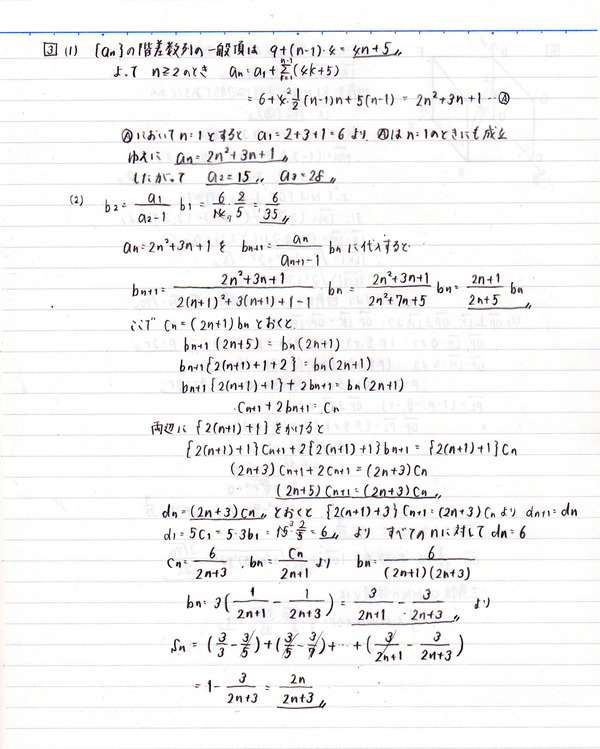 3 (1) {an}の階差数列の一般項は 9+(n-1)・4=4n+5
よって n≧2のとき an=a1+Σ[k=1, n-1](4k+5)
=6+4・1/2(n-1)n+5(n-1)=2n²+3n+1…Ⓐ
Ⓐにおいてn=1とすると a1=2+3+1=6より、Ⓐはn=1のときにも成立
ゆえに an=2n²+3n+1
したがって a2=15, a3=28
(2) b2=a1/(a2-1) b1=6/14・2/5=6/35
an=2n²+3n+1を bn+1=an/(an+1-1) bnに代入すると
bn+1=(2n²+3n+1)/(2(n+1)²+3(n+1)+1-1) bn=(2n²+3n+1)/(2n²+7n+5) bn=(2n+1)/(2n+5) bn
ここで Cn=(2n+1)bnとおくと、
bn+1(2n+5)=bn(2n+1)
bn+1{2(n+1)+1+2}=bn(2n+1)
bn+1{2(n+1)+1}+2bn+1=bn(2n+1)
Cn+1+2bn+1=Cn
両辺に{2(n+1)+1}をかけると
{2(n+1)+1}Cn+1+2{2(n+1)+1}bn+1={2(n+1)+1}Cn
(2n+3)Cn+1+2Cn+1=(2n+3)Cn
(2n+5)Cn+1=(2n+3)Cn
dn=(2n+3)Cnとおくと {2(n+1)+3}Cn+1=(2n+3)Cnより dn+1=dn
d1=5C1=5・3b1=15・2/5=6 より すべてのnに対してdn=6
Cn=6/(2n+3), bn=Cn/(2n+1)より bn=6/((2n+1)(2n+3))
bn=3(1/(2n+1)-1/(2n+3))=3/(2n+1)-3/(2n+3) より
Sn=(3/3-3/5)+(3/5-3/7)+…+(3/(2n+1)-3/(2n+3))
=1-3/(2n+3)=2n/(2n+3)